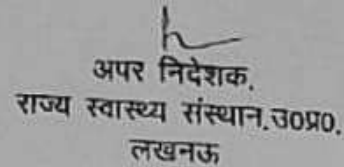 अपर निदेशक.
राज्य स्वास्थ्य संस्थान.उ0प्र0.
लखनऊ